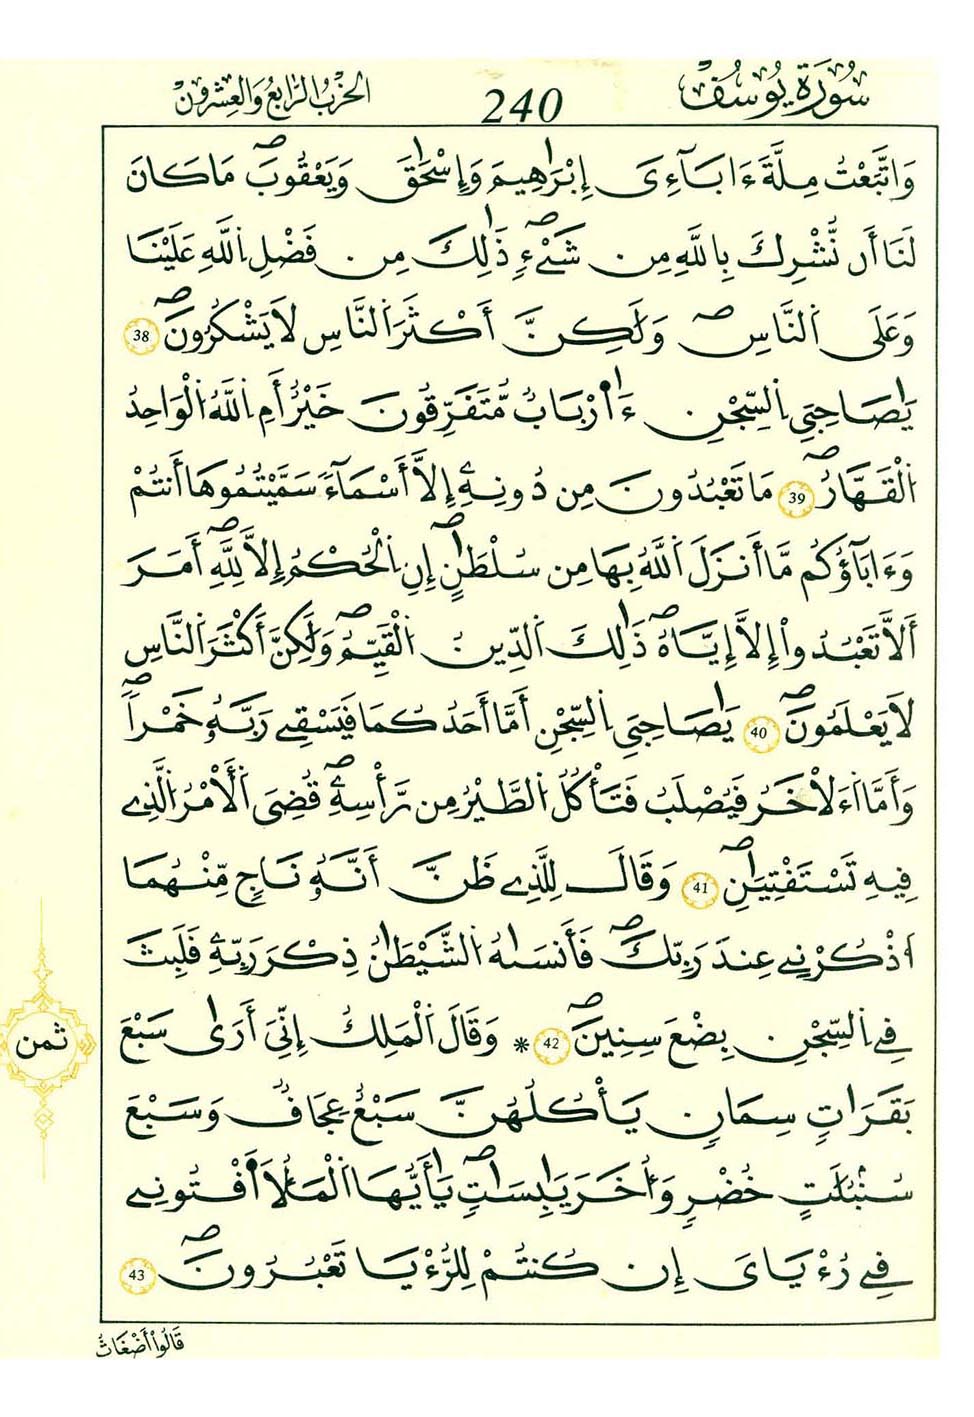 سُورَةُ يُوسُفَ
240
الحِزْبُ الرَّابِعُ وَالعِشْرُونَ
وَاتَّبَعْتُ مِلَّةَ ءَابَآءِىَ إِبْرَٰهِيمَ وَإِسْحَٰقَ وَيَعْقُوبَ ۖ مَا كَانَ
لَنَا أَن نُّشْرِكَ بِاللَّهِ مِن شَيْءٍ ۖ ذَٰلِكَ مِن فَضْلِ اللَّهِ عَلَيْنَا
وَعَلَى النَّاسِ ۖ وَلَٰكِنَّ أَكْثَرَ النَّاسِ لَا يَشْكُرُونَ ۖ 38
يَٰصَاحِبَىِ السِّجْنِ ءَا۬رْبَابٌ مُّتَفَرِّقُونَ خَيْرٌ أَمِ اللَّهُ الْوَاحِدُ
الْقَهَّارُ ۖ 39 مَا تَعْبُدُونَ مِن دُونِهِۦ إِلَّا أَسْمَآءً سَمَّيْتُمُوهَا أَنتُمْ
وَءَابَآؤُكُم مَّا أَنزَلَ اللَّهُ بِهَا مِن سُلْطَٰنٍ ۖ إِنِ الْحُكْمُ إِلَّا لِلَّهِ ۖ أَمَرَ
أَلَّا تَعْبُدُواْ إِلَّا إِيَّاهُ ۖ ذَٰلِكَ الدِّينُ الْقَيِّمُ ۖ وَلَٰكِنَّ أَكْثَرَ النَّاسِ
لَا يَعْلَمُونَ ۖ 40 يَٰصَاحِبَىِ السِّجْنِ أَمَّا أَحَدُكُمَا فَيَسْقِى رَبَّهُۥ خَمْراً ۖ
وَأَمَّا اَ۬لَاخَرُ فَيُصْلَبُ فَتَأْكُلُ الطَّيْرُ مِن رَّأْسِهِۦ ۖ قُضِىَ اَ۬لَأَمْرُ الَّذِى
فِيهِ تَسْتَفْتِيَٰنِ ۖ 41 وَقَالَ لِلَّذِى ظَنَّ أَنَّهُۥ نَاجٍ مِّنْهُمَا
اَ۟ذْكُرْنِى عِندَ رَبِّكَ ۖ فَأَنسَىٰهُ الشَّيْطَٰنُ ذِكْرَ رَبِّهِۦ فَلَبِثَ
فِى السِّجْنِ بِضْعَ سِنِينَ ۖ 42 * وَقَالَ الْمَلِكُ إِنِّىَ أَرَىٰ سَبْعَ
ثمن
بَقَرَاتٍ سِمَانٍ يَأْكُلُهُنَّ سَبْعٌ عِجَافٌ وَسَبْعَ
سُنۢبُلَٰتٍ خُضْرٍ وَأُخَرَ يَابِسَٰتٍ ۖ يَٰأَيُّهَا الْمَلَأُ ا۬فْتُونِى
فِى رُءْيَٰاىَ إِن كُنتُمْ لِلرُّءْيَا تَعْبُرُونَ ۖ 43
قَالُواْ أَضْغَاثُ